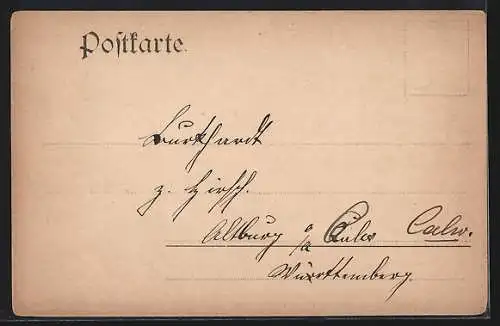 Postkarte.
Burkhardt
z. Hirsch.
Altburg o/a Calw Calw.
Württemberg.